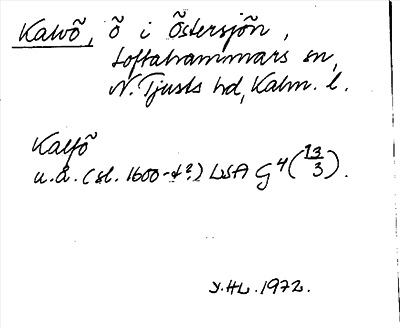 Kalvö, ö i Östersjön,
Loftahammars sn,
N. Tjusts hd, Kalm. l.
Kalfö
u.å. (sl. 1600-t?) LSA G4 (13/3).
Y.HL.1972.